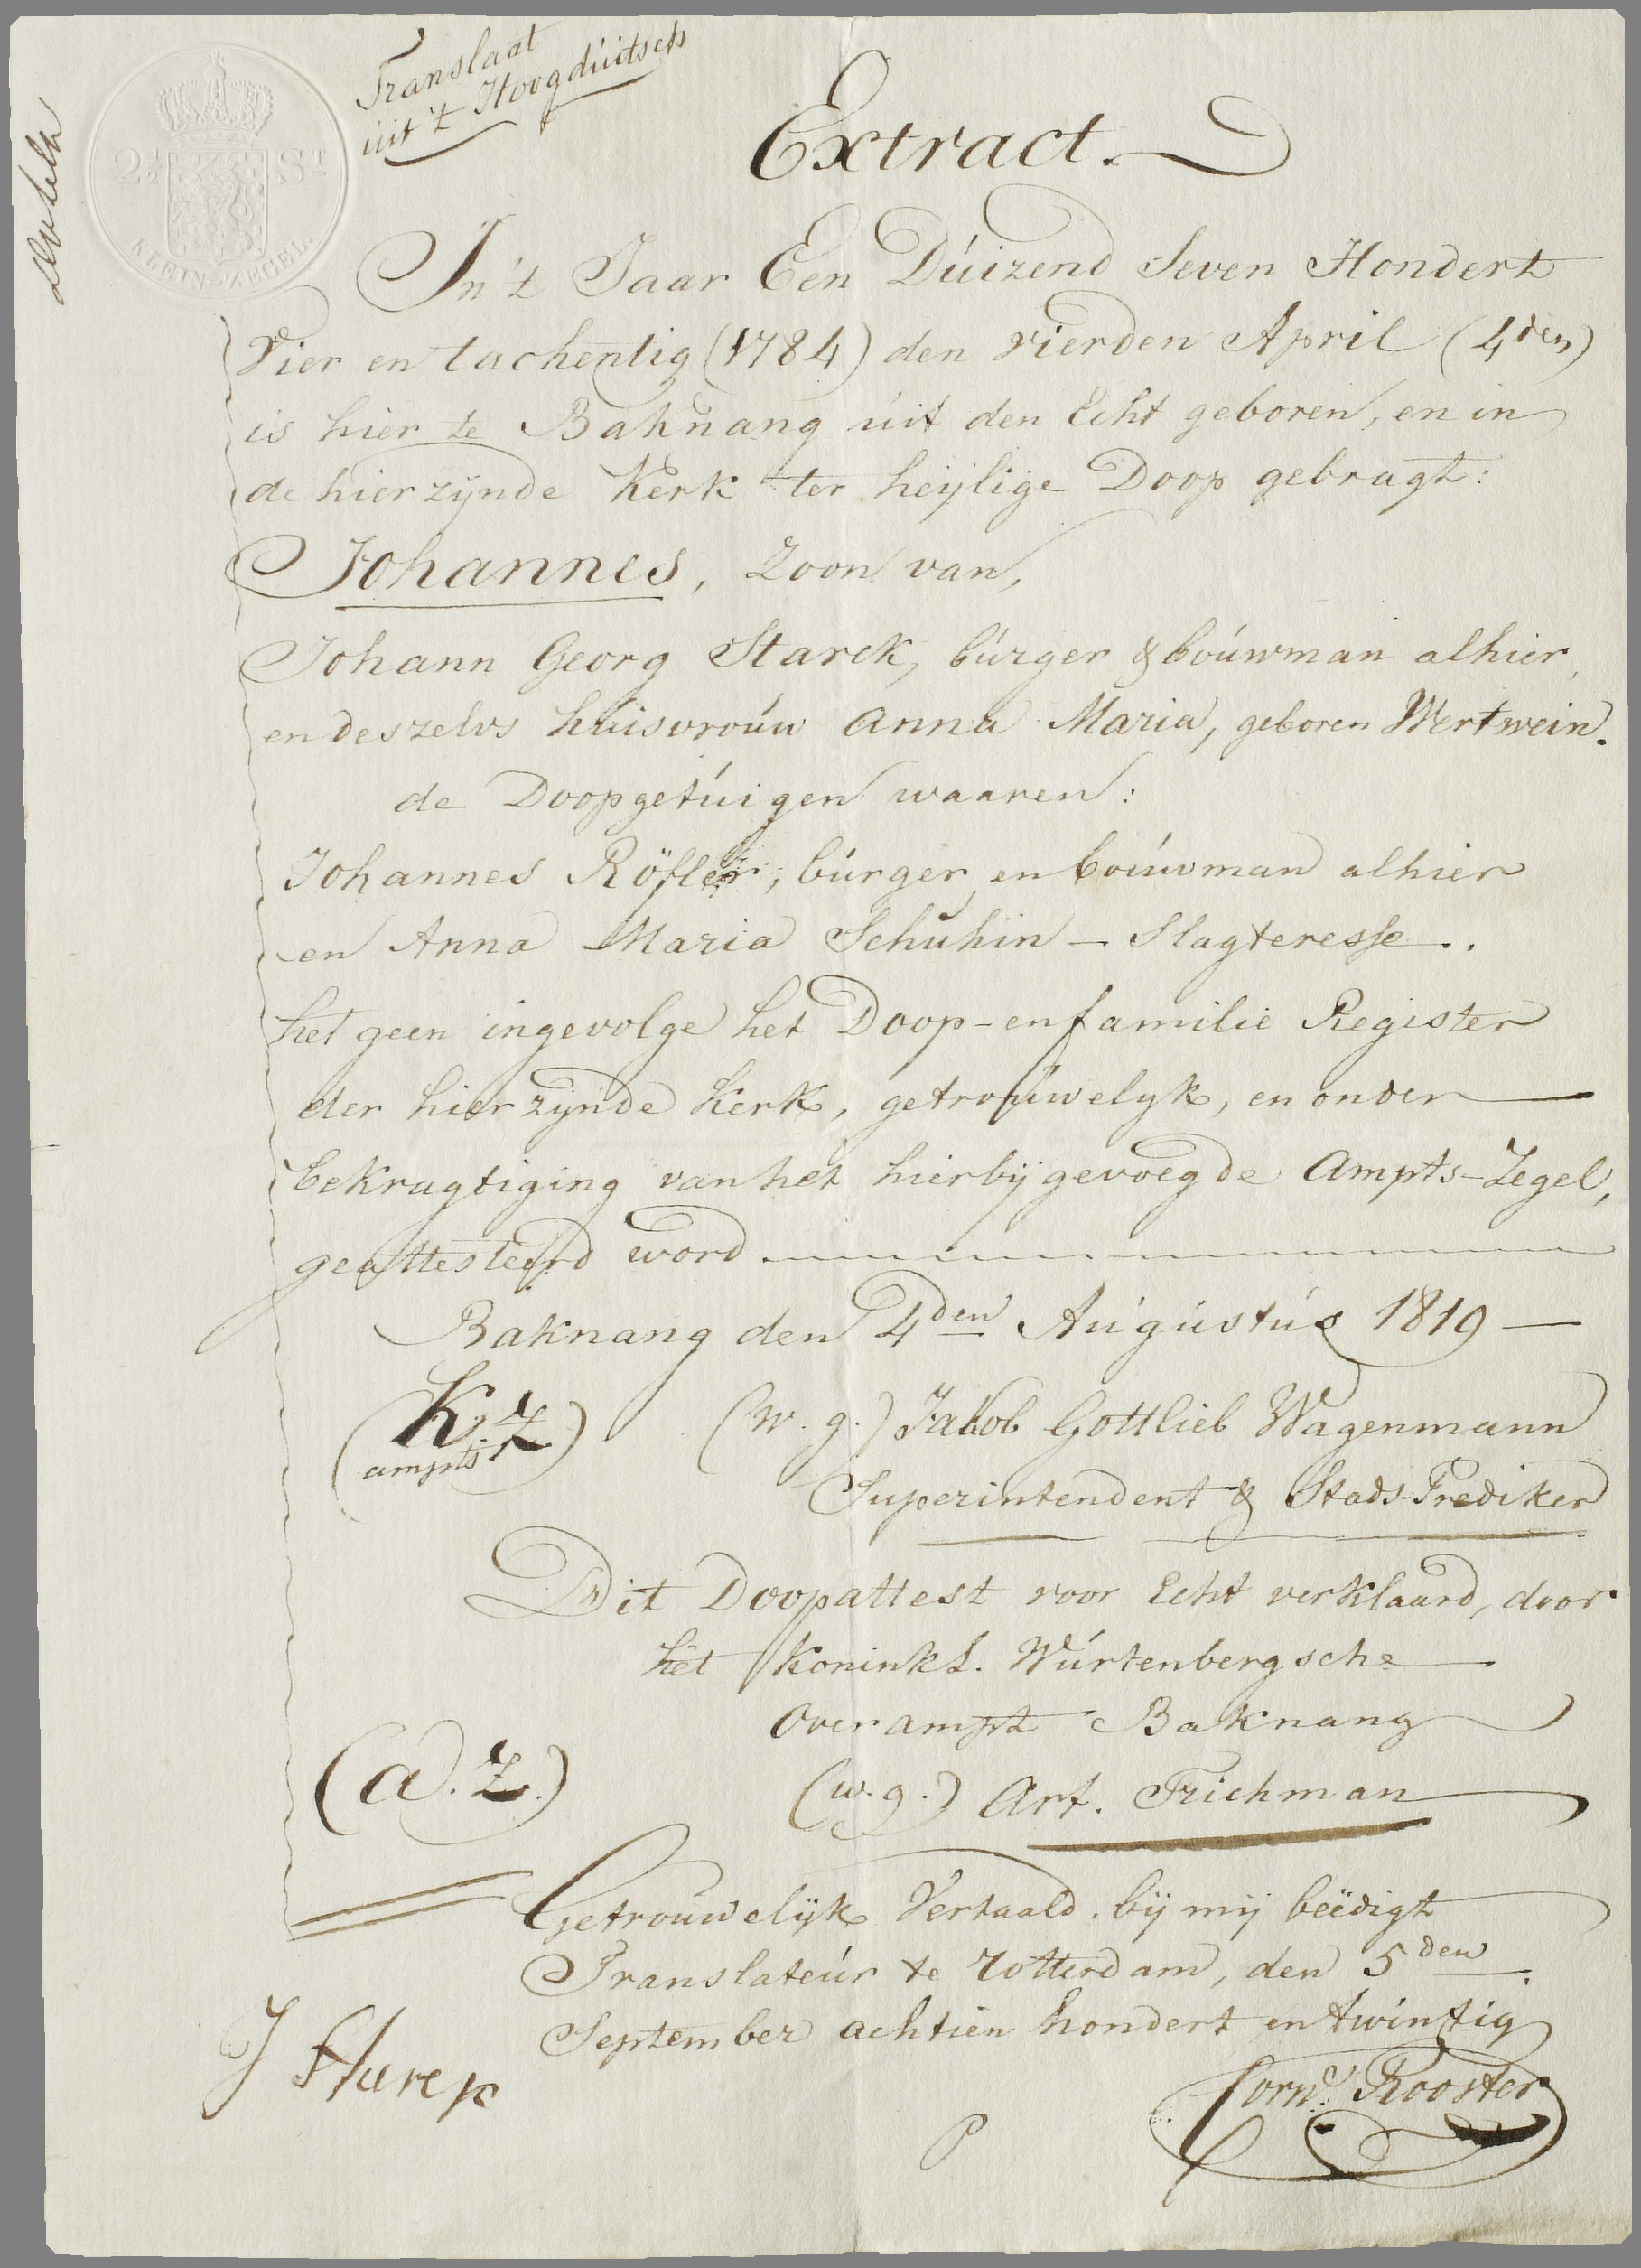 Translaat
uit 't Hoogdúitsch
2½ St
KLEIN ZEGEL.
Extract.
In 't Jaar Een Dúizend Seven Hondert
Vier en tachentig (1784) den vierden April (4den)
is hier te Baknang uit den Echt geboren, en in
de hierzÿnde Kerk ter heÿlige Doop gebragt:
Johannes, Zoon van,
Johann Georg Starck, búrger & boúwman alhier,
en deszelvs húisvroúw Anna Maria, geboren Wertwein.
de Doopgetúigen waaren:
Johannes Röfler, búrger en boúwman alhier
en Anna Maria Schuhin - Slagteresse..
het geen ingevolge het Doop- en familie Register
der hierzÿnde Kerk, getroúwelyk, en onder
bekragtiging van het hierbÿ gevoegde Ampts-Zegel,
geattesteerd word
Baknang den 4den Aúgústús 1819 —
(K. Z
ampts)
(w. g.) Jakob Gottlieb Wagenmann
Superintendent & Stads-Prediker
Dit Doopattest voor Echt verklaard, door
het Koninkl. Wúrtenbergsche
Over ampt Baknang
(a. Z.)
(w. g.) Art. Frichman
Getroúwelÿk Vertaald bÿ mÿ beëdigt
Translateúr te Rotterdam, den 5den
September achtien hondert en twintig
J Starck
Corns. Rooster